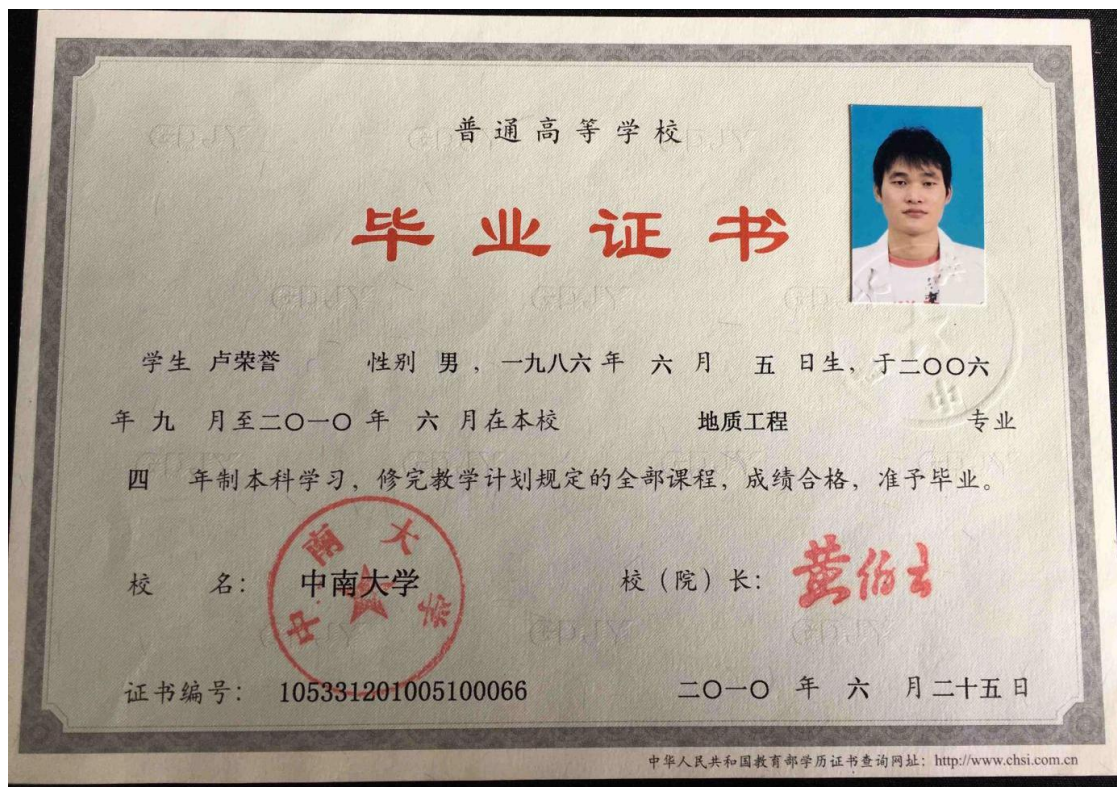 普通高等学校
毕业证书
学生 卢荣誉 性别 男 ，一九八六 年 六 月 五 日生，于二〇〇六
年 九 月至二〇一〇 年 六 月在本校 地质工程 专业
四 年制本科学习，修完教学计划规定的全部课程，成绩合格，准予毕业。
校 名： 中南大学 校（院）长： 黄伯云
中南大学
证书编号： 105331201005100066 二〇一〇 年 六 月二十五日
中华人民共和国教育部学历证书查询网址：http://www.chsi.com.cn